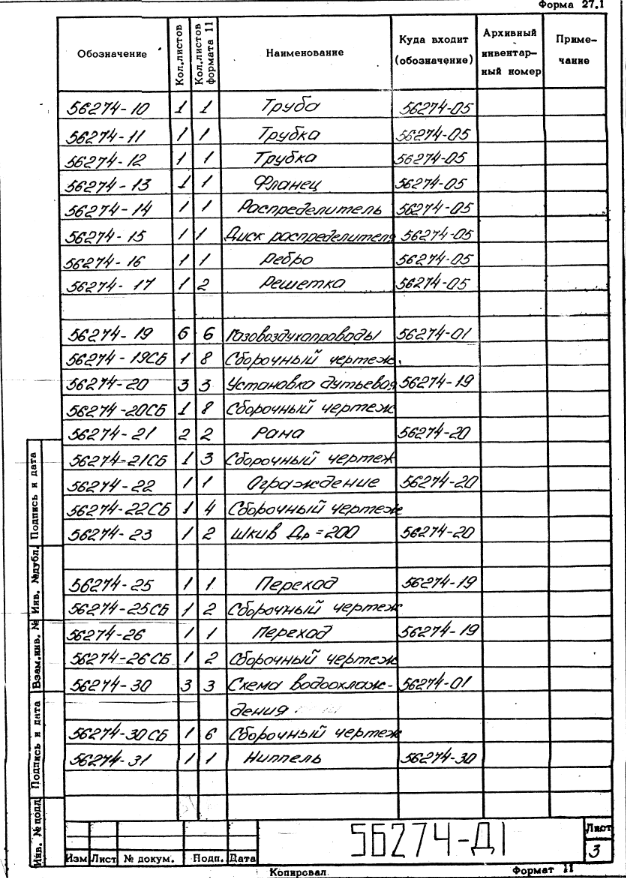 Форма 27.1
Обозначение Кол.листов Кол.листов формата 11 Наименование Куда входит (обозначение) Архивный инвентар-ный номер Приме-чание
56274-10 1 1 Труба 56274-05
56274-11 1 1 Трубка 56274-05
56274-12 1 1 Трубка 56274-05
56274-13 1 1 Фланец 56274-05
56274-14 1 1 Распределитель 56274-05
56274-15 1 1 Диск распределителя 56274-05
56274-16 1 1 Ребро 56274-05
56274-17 1 2 Решетка 56274-05
56274-19 6 6 Газовоздухопроводы 56274-01
56274-19СБ 1 8 Сборочный чертеж.
56274-20 3 3 Установка дутьевая 56274-19
56274-20СБ 1 8 Сборочный чертеж
56274-21 2 2 Рама 56274-20
56274-21СБ 1 3 Сборочный чертеж
56274-22 1 1 Ограждение 56274-20
56274-22СБ 1 4 Сборочный чертеж
56274-23 1 2 Шкив Др=200 56274-20
56274-25 1 1 Переход 56274-19
56274-25СБ 1 2 Сборочный чертеж
56274-26 1 1 Переход 56274-19
56274-26СБ 1 2 Сборочный чертеж
56274-30 3 3 Схема водоохлаж- 56274-01
дения
56274-30СБ 1 6 Сборочный чертеж
56274-31 1 1 Ниппель 56274-30
Подпись и дата
Инв. №дубл.
Взам.инв. №
Подпись и дата
Инв. №подл.
56274-Д1
Лист
3
Изм Лист № докум. Подп. Дата
Копировал Формат 11